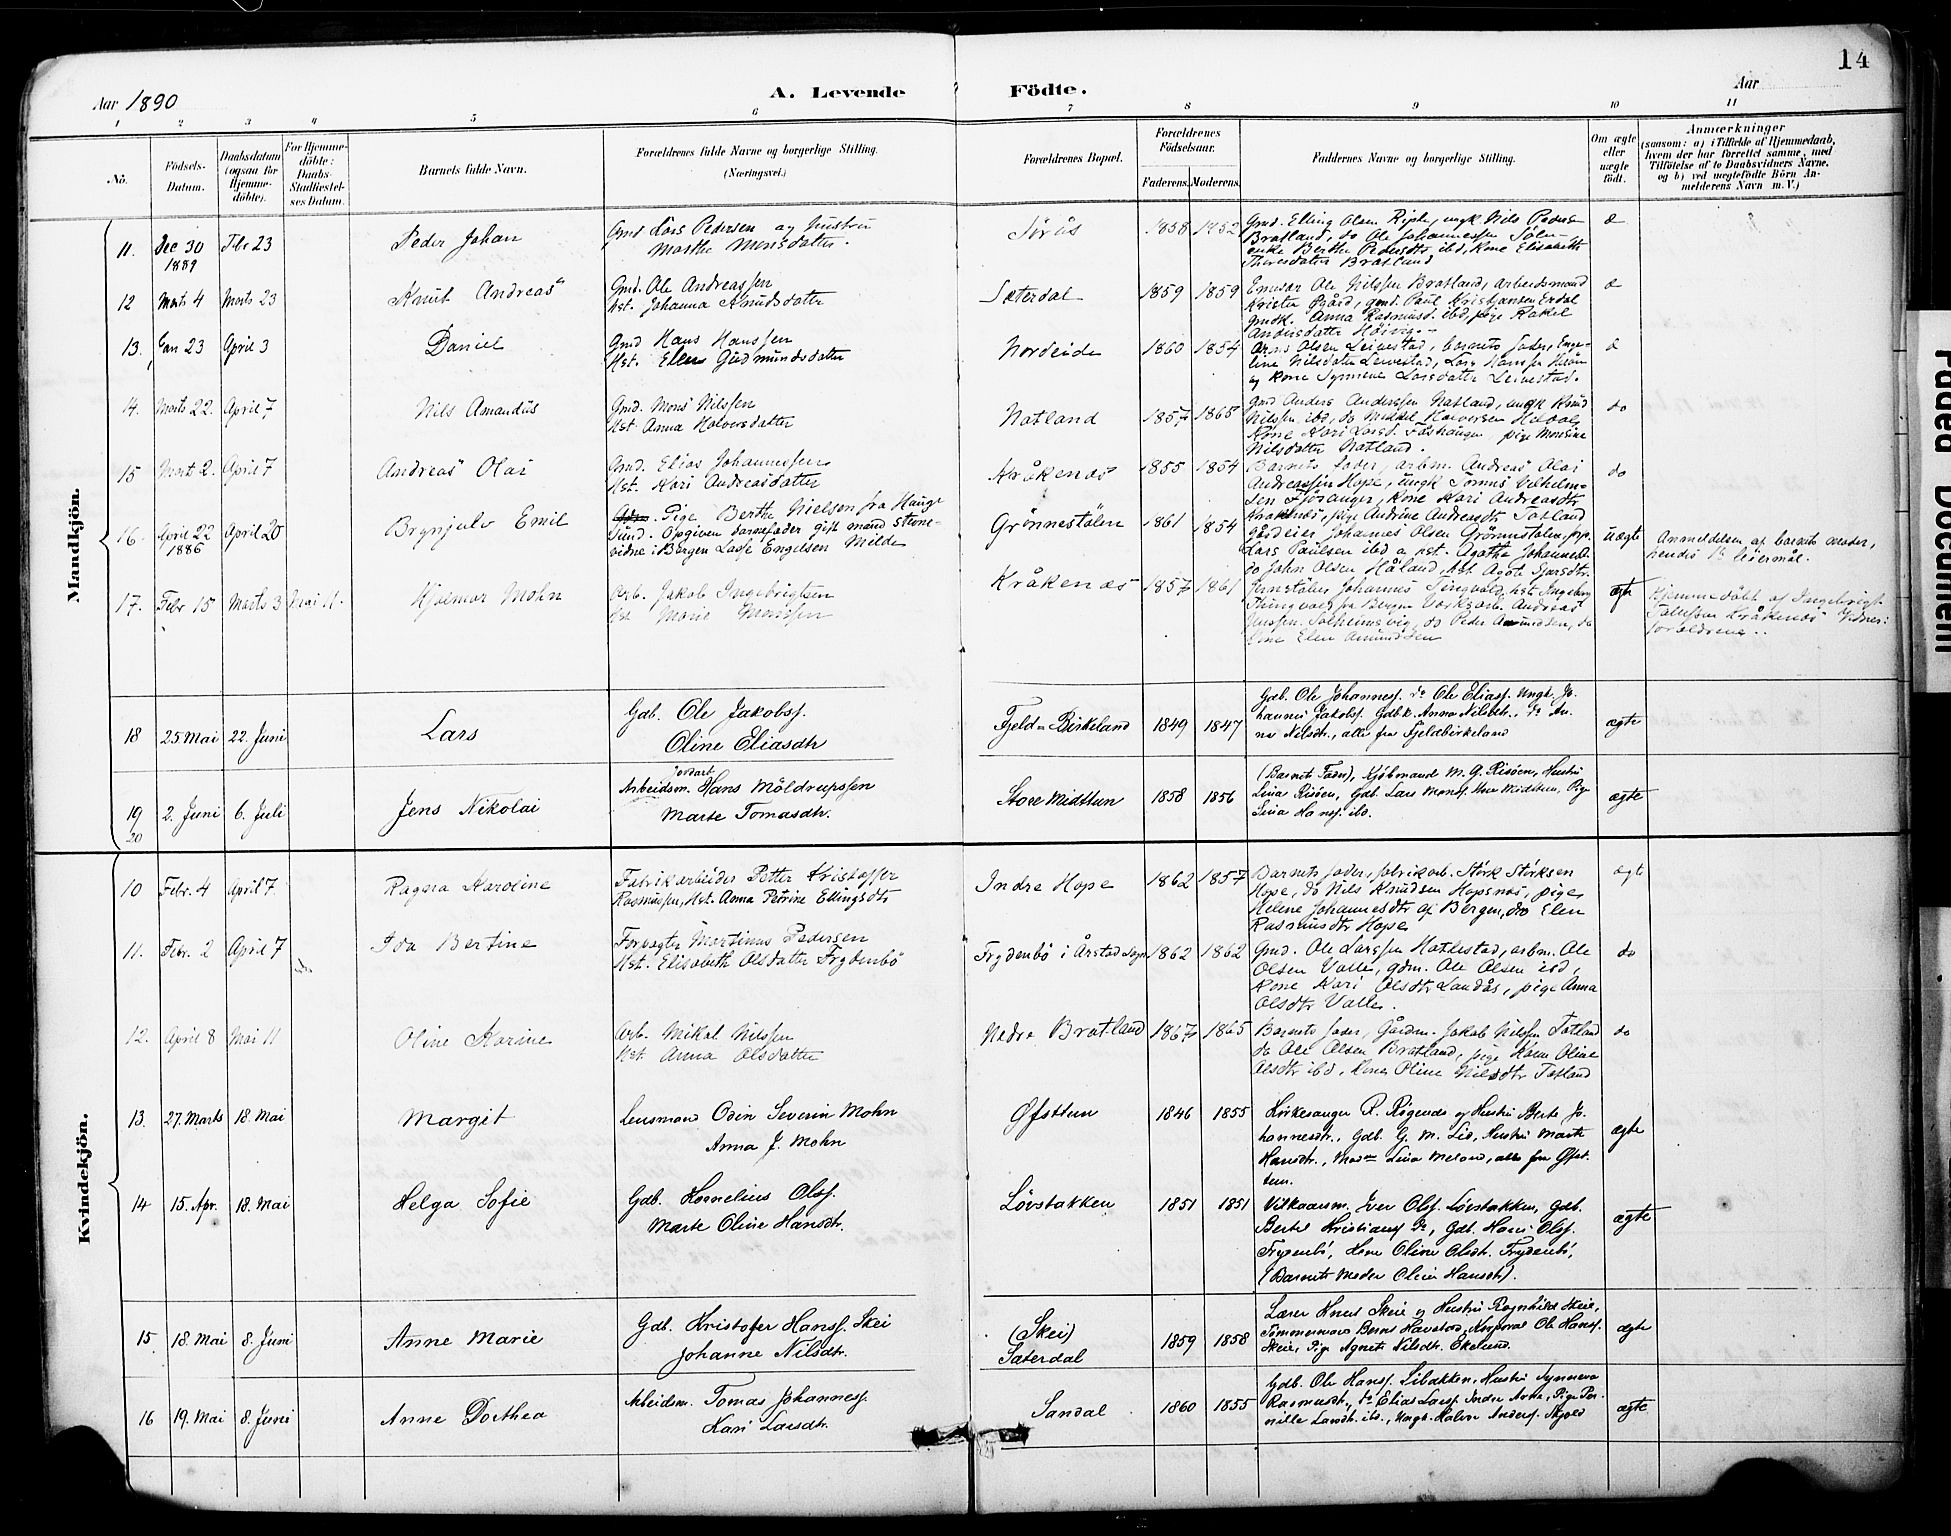 14
Aar 1890
A. Levende Födte.
Aar
1 2 3 4 5 6 7 8 9 10 11
No.
Födsels-Datum.
Daabsdatum (ogsaa for Hjemmedöbte).
For Hjemmedöbte: Daabs-Stadfæstelses Datum.
Barnets fulde Navn.
Forældrenes fulde Navne og borgerlige Stilling. (Næringsvei.)
Forældrenes Bopæl.
Forældrenes Födselsaar.
Faderens. Moderens.
Faddernes Navne og borgerlige Stilling.
Om ægte eller uægte födt.
Anmærkninger
(saasom: a) i Tilfælde af Hjemmedaab, hvem der har forrettet samme, med Tilföielse af to Daabsvidners Navne, og b) ved uægtefödte Börn Anmelderens Navn m. V.)
Mandkjön.
11. Dec 30 1889 Febr 23 Peder Johan
Gmd Lars Pedersen og hustru
Marthe Monsdatter.
Sörås 1858 1852
Gmd. Elling Olsen Riple, ungk. Nils Peders
Bratland, do Ole Johannessen Sælen
enke Berthe Pedersdtr ibd, Kone Elisabeth
Thoresdatter Bratland
12 Marts 4 Marts 23 Knut Andreas
Gmd. Ole Andreassen
Hst. Johanna Knudsdatter
Sæterdal 1859 1859
Ole Nilssen Bratland, arbeidsmand
gmd. Paul Kristiansen Erdal
gmdk. Anna Rasmusd. ibd, pige Rakel
Andersdatter
13. Jan 23 April 3 Daniel
Gmd Hans Hanssen
Hst. Elen Gudmundsdatter
Nordeide 1860 1854
Arns Olsen Leivestad, barnets fader, Enge-
line Nilsdatter Leivestad, Lars Hanssen
og Kone Synneve Larsdatter Leivestad.
14. Marts 22. April 7 Nils Amandus
Gmd. Mons Nilssen
Hst. Anna Halversdatter
Natland 1857 1865
Gmd Anders Anderssen Natland, ungk Knud
Nilssen ibd, do Mikkel Halversen
Kone Kari Larsd. pige Monsine
Nilsdatter Natland.
do
15 Marts 2. April 7 Andreas Olai
Gmd. Elias Johannessen
Hst. Kari Andreasdatter
Kråkenæs 1855 1854
Barnets fader, arbm. Andreas Olai
Andreassen Hope, ungk Tomas Vilhelm-
sen Fjösanger, Kone Kari Andreasdtr
Kråkenæs, pige Andrine Andreasdtr Tatland
do
16. April 22 1886 April 20 Brynjulv Emil
Pige Berthe Nielsen fra Hauge
sund. Opgiven barnefader gift mand stevne-
vidne i Bergen Lasse Engelsen Milde
Grönnestölen 1861 1854
gårdeier Johannes Olsen Grönnestölen,
Lars Paulsen ibd
do John Olsen Håland, hst. Agate Sjursdtr.
uægte
Anmeldelsen af barnets moder,
hendes 1te leiermål.
17. Febr 15 Marts 3 Mai 11. Hjalmar Mohn
Arb. Jakob Ingebrigtsen
Hst Marie Monssen
Kråkenæs 1857 1861
Jernstöber Johannes Tingvold, hst Ingeborg
Thingvold fra Bergen Værksarb. Andreas
Janssen Solheimsvig, do Peder Amundsen, do
Kone Elen Amundsen
ægte
Hjemmedöbt af Ingebrigt
Kråkenæs Vidner:
forældrene..
18 25 Mai 22. Juni Lars
Gdb. Ole Jakobs.
Oline Eliasdtr
Fjeld-Birkeland 1849 1847
Gdb. Ole Johannes. do Ole Elias. Ungk. Jo-
hannes Jakobs. Gdbk. Anna Nilsdtr., do An-
na Nilsdtr., alle fra Fjeldbirkeland
ægte
19 2. Juni 6. Juli Jens Nikolai
Arbeidsm. Hans Möldrupssen
Marte Tomasdtr.
Store Midttun 1858 1856
(Barnets Fader), Kjöbmand M. G. Risöen, Hustru
Lina Risöen, Gdb. Lars Mons. Store Midttun, Pige
Lina Hans. ibd.
ægte
20
Kvindekjön.
10 Febr. 4 April 7 Ragna Karoline
Fabrikarbeider Petter Kristoffer
Rasmussen, Hst. Anna Petrine Ellingsdtr
Indre Hope 1862 1857
Barnets fader, fabrikarb. Störk Störksen
Hope, do Nils Knudsen Hopsnæs, pige
Helene Johannesdtr af Bergen, do Elen
Rasmusdtr Hope
ægt
11. Febr. 2 April 7 Ida Bertine
Forvagter Martinus Pedersen
Hst. Elisabeth Olsdatter Frydenbö
Frydenbö i Årstad Sogn 1862 1862
Gmd. Ole Larssen Hatlestad, arbm. Ole
Olsen Valle, gdm. Ole Olsen ibd,
Kone Kari Olsdtr Landås, pige Anna
Olsdtr Valle.
do
12. April 8 Mai 11 Oline Karine
Arb. Mikal Nilssen
Hst Anna Olsdatter
Nedre Bratland 1867 1865
Barnets fader, Gårdm. Jakob Nilssen Tatland
do Ole Olsen Bratland, pige Karen Oline
Olsdtr ibd, Kone Oline Nilsdtr Tatland
do
13. 27. Marts 18. Mai Margit
Lensmand Odin Severin Mohn
Anna J. Mohn
Øfsttun 1846 1855
Kirkesanger R. Røgenes og Hustru Berte Jo-
hannesdtr., Gdb. G. M. Lid, Hustru Marte
Hansdtr., Lina Meland, alle fra Øfst-
tun.
ægte
14 15. Apr. 18. Mai Helga Sofie
Gdb. Kornelius Ols.
Marte Oline Hansdtr.
Lövstakken 1851 1851
Vilkaarsm. Iver Ols. Lövstakken, Gdb.
Bertel Kristians do, Gdb. Hans Ols.
Frydenbö, Kone Oline Olsdtr. Frydenbö,
(Barnets Moder Oline Hansdtr).
ægte
15 18. Mai 8. Juni Anne Marie
Gdb. Kristofer Hans. Skei
Johanne Nilsdtr.
(Skei)
Sæterdal 1859 1858
Lærer Knud Skeie og Hustru Ragnhild Skeie,
Tömmermand Bernt Havstad, Korporal Ole Hans.
Skeie, Pige Agnete Nilsdtr. Ekelund.
ægte
16 19. Mai 8. Juni Anne Dorthea
Arbeidsm. Tomas Johannes.
Kari Larsdtr.
Sandal 1860 1855
Gdb. Ole Hans. Libakken, Hustru Synneva
Rasmusdt., do Elias Lars. Indre Arne, Pige Per-
nille Larsdtr. ibd., Ungk. Halvor Anders.
ægte
Faded Document